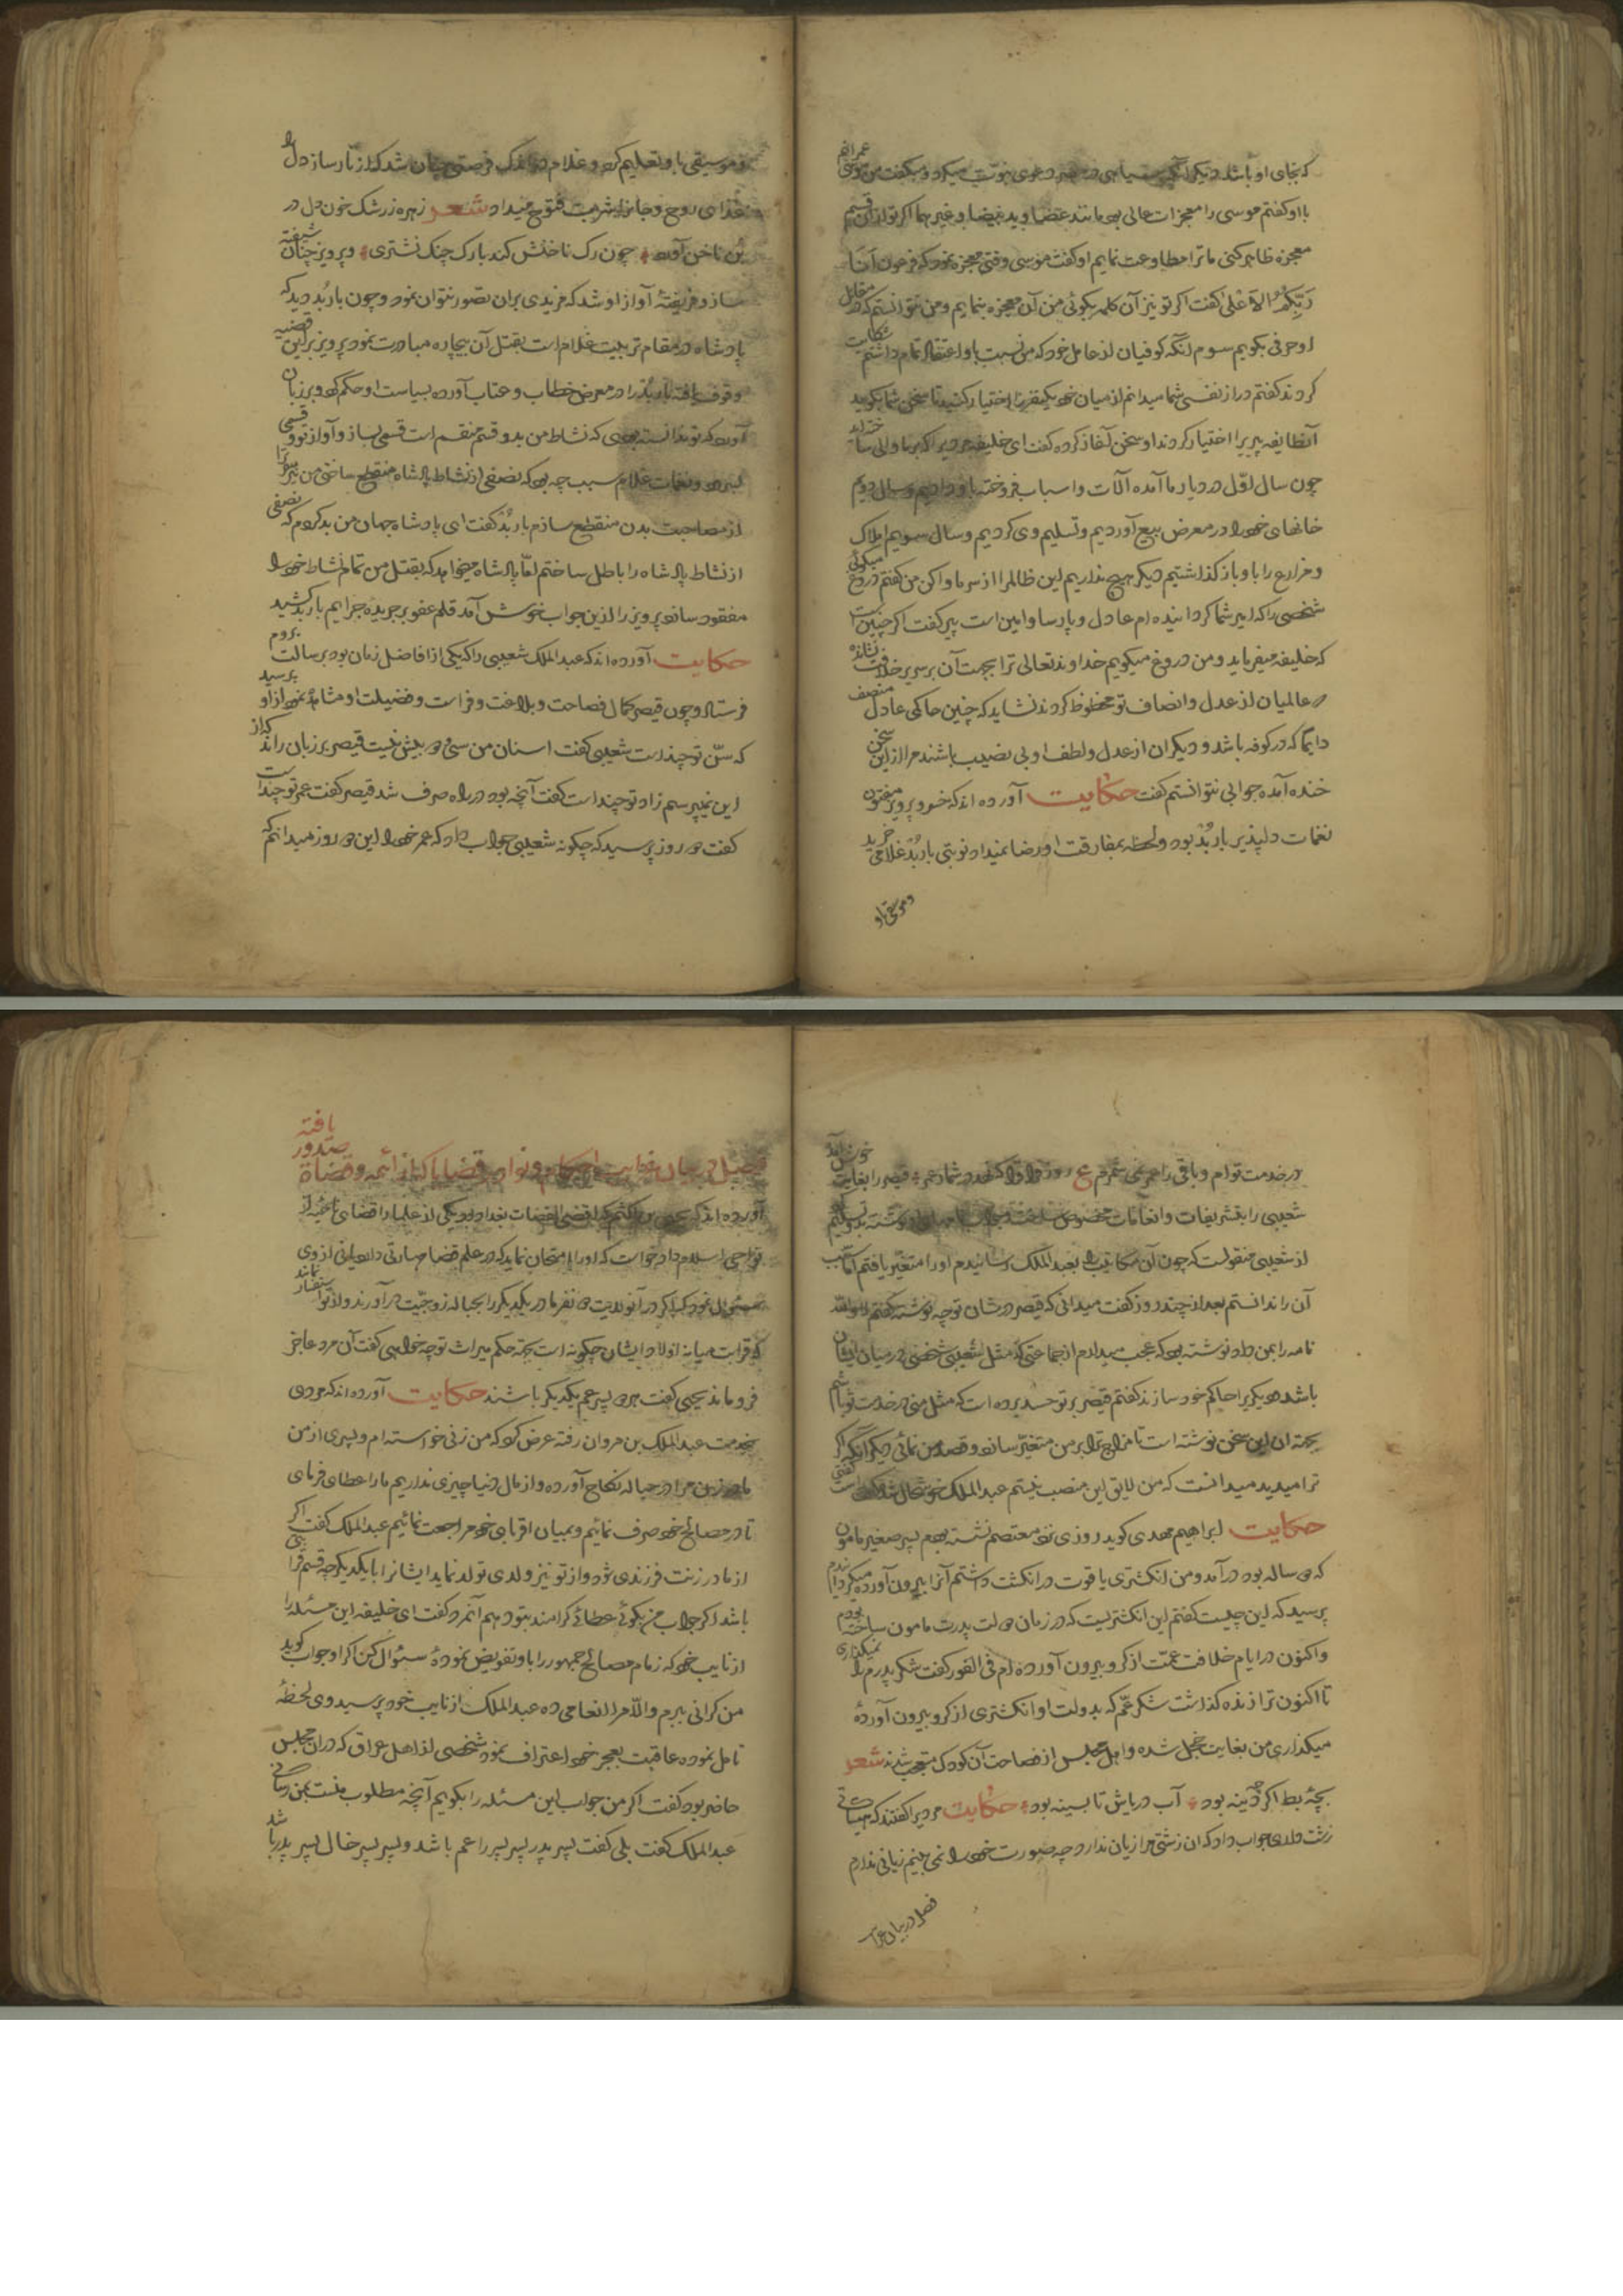 که بجای او باشد دیگر آنکه سیاهی در دعوی نبوت میکرد و میگفت من موسی عمرانم
با او گفتم موسی را معجزات عالی بود مانند عصا و ید بیضا و غیرهما اگر تو از آن قسم
معجزه ظاهر کنی ما ترا مطاوعت نمایم او گفت موسی وقتی معجزه نمود که فرعون اَنَا
رَبّکُمُ الاَعْلیٰ گفت اگر تو نیز آن کلمه بگوئی من آن معجزه بنمایم و من نتوانستم که در مقابل
او حرفی بگویم سوم آنکه کوفیان از عامل خود که من نسبت باو اعتقاد تمام داشتم شکایت
کردند گفتم در از نفسی شما میدانم از میان خود یکنفر را اختیار کنید تا سخن شما بگوید
آنطایفه پیر را اختیار کردند او سخن آغاز کرده گفت ای خلیفه
چون سال اوّل در دیار ما آمده آلات و اسباب فروخته باو دادیم و سال دویم
خانهای خود را در معرض بیع آوردیم و تسلیم وی کردیم و سال سویم املاک
و مزارع را باو باز گذاشتیم دیگر هیچ نداریم این ظالم را از سر ما وا کن من گفتم دروغ میگوئی
شخصی را که امیر شما گردانیده ام عادل و پارسا و امین است پیر گفت اگر چنین است
که خلیفه میفرماید و من دروغ میگویم خداوند تعالی ترا بجهت آن بر سریر خلافت نشانده
و عالمیان از عدل و انصاف تو محظوظ کردند نشاید که چنین حاکمی عادل منصف
دایما که در کوفه باشد و دیگران از عدل و لطف او بی نصیب باشند مرا از این سخن
خنده آمده جوابی نتوانستم گفت حکایت آورده اند که خسرو پرویز مفتون
نغمات دلپذیر باربُد بود و لحظه بمفارقت او رضا نمیداد نوبتی باربُد غلامی خرید
و موسیقی باو
و موسیقی باو تعلیم کرد و غلام در اندک فرصتی چنان شد که از تار ساز دل را
غذای روح و جانرا شربت فتوح میداد شعر زهره زرشک خون دل در
بن ناخن آورد چون رک ناخنش کند با رک چنک نشتری و پرویز چنان شیفته
ساز و فریفتهٔ آواز او شد که مزیدی بران تصور نتوان نمود و چون باربُد دید که
پادشاه در مقام تربیت غلام است بقتل آن بیچاره مبادرت نمود پرویز بر این قضیه
وقوف یافته باربُد را در معرض خطاب و عتاب آورده بسیاست او حکم کرد و بر زبان
آورد که تو ندانسته بودی که نشاط من بدو قسم منقسم است قسمی بساز و آواز تو و قسمی
و نغمات غلام سبب چه بود که نصفی از نشاط پادشاه منقطع ساختی من نیز سر ترا
از مصاحبت بدن منقطع سازم باربُد گفت ای پادشاه جهان من بد کردم که نصفی
از نشاط پادشاه را باطل ساختم امّا پادشاه میخواهد که بقتل من تمام نشاط خود را
مفقود سازد پرویز را از این جواب خوش آمد قلم عفو بر جریده جرایم باربد کشید
حکایت آورده اند که عبدالملک شعیبی را که یکی از افاضل زمان بود برسالت بروم
فرستاد و چون قیصر کمال فصاحت و بلاغت و فراست و فضیلت او مشاهده نمود از او پرسید
که سنّ تو چند است شعیبی گفت اسنان من سی و دو بیش نیست قیصر بر زبان راند که از
این نمیپرسم زاد تو چند است گفت آنچه بود در راه صرف شد قیصر گفت عمر تو چند است
گفت دو روز پرسید که چگونه شعیبی جواب داد که عمر خود را این دو روز میدانم که
در خدمت توام و باقی را عمر نمی شمرم ع قیصر را بغایت خوش آمد
شعیبی را بتشریفات و انعامات مخصوص ساخت
از شعیبی منقولست که چون آن مکاتیب را بعبدالملک رسانیدم او را متغیّر یافتم امّا سبب
آن را ندانستم بعد از چند روز گفت میدانی که قیصر در شان تو چه نوشته گفتم لا والله
نامه را بمن داد نوشته بود که عجب میدارم از جماعتی که مثل شعیبی شخصی در میان ایشان
باشد و دیگریرا حاکم خود سازند گفتم قیصر بر تو حسد برده است که مثل منی در خدمت تو باشم
بجهت آن این سخن نوشته است تا مزاج ترا بر من متغیّر سازد و قصد من نمائی دیگر آنکه اگر
ترا میدید میدانست که من لایق این منصب نیستم عبدالملک خوشحال شد
حکایت ابراهیم مهدی گوید روزی نزد معتصم نشسته بودم پسر صغیر مامون
که ده ساله بود در آمد و من انگشتری یاقوت در انگشت داشتم آنرا بیرون آورده میگردانیدم
پرسید که این چیست گفتم این انگشتریست که در زمان دولت پدرت مامون ساخته بودم
و اکنون در ایام خلافت عمّت از گرو بیرون آورده ام فی الفور گفت شکر پدرم را نمیگذاری
تا اکنون ترا زنده گذاشت شکر عمّم که بدولت او انگشتری از گرو بیرون آوردهٔ
میگذاری من بغایت خجل شده و اهل مجلس از فصاحت آن کودک متعجب شدند شعر
بچهٔ بط اگر چه دینه بود آب دریاش تا بسینه بود حکایت مردیرا گفتند که
زشت داری جواب داد که از زشتی مرا زیان ندارد چه صورت خود را نمی بینم زیانی ندارم
فصل در بیان غرایب
فصل در بیان غرایب احکام و نوادر قضایا که از ائمه و قضاة صدور یافته
آورده اند که یحیی بن اکثم که اقضی القضات بغداد بود یکی از علما را قضای ناحیه از
نواحی اسلام داد خواست که او را امتحان نماید که در علم قضا مهارتی دارد یا نی از وی
سئوال نمود که اگر در آنولایت دو نفر مادر یکدیگر را بحباله زوجیّت در آورند و از تو استفسار نمایند
که قرابت میانه اولاد ایشان چگونه است بجهت حکم میراث تو چه خواهی گفت آن مرد عاجز
فرو ماند یحیی گفت هر دو پسر عم یکدیگر باشند حکایت آورده اند که مردی
بخدمت عبدالملک بن مروان رفته عرض کرد که من زنی خواسته ام و پسری از من
مادر زن مرا در حباله نکاح آورده و از مال دنیا چیزی نداریم ما را عطای فرمای
تا در مصالح خود صرف نمائیم و بمیان اقربای خود مراجعت نمائیم عبدالملک گفت اگر
از مادر زنت فرزندی شود و از تو نیز ولدی تولد نماید ایشانرا با یکدیگر چه قسم قرابتی
باشد اگر جواب من بگوئی عطائی گرامند بتو دهم آنمرد گفت ای خلیفه این مسئله را
از نایب خود که زمام مصالح جمهور را باو تفویض نمودهٔ سئوال کن اگر او جواب گوید
من گرانی ببرم و الّا مرا انعامی ده عبدالملک از نایب خود پرسید وی لحظهٔ
تامل نموده عاقبت بعجز خود اعتراف نمود شخصی از اهل عراق که در ان مجلس
حاضر بود گفت اگر من جواب این مسئله را بگویم آنچه مطلوب منست بمن رسانی
عبدالملک گفت بلی گفت پسر پدر پسر پسر را عم باشد و پسر پسر خال پسر پدر باشد